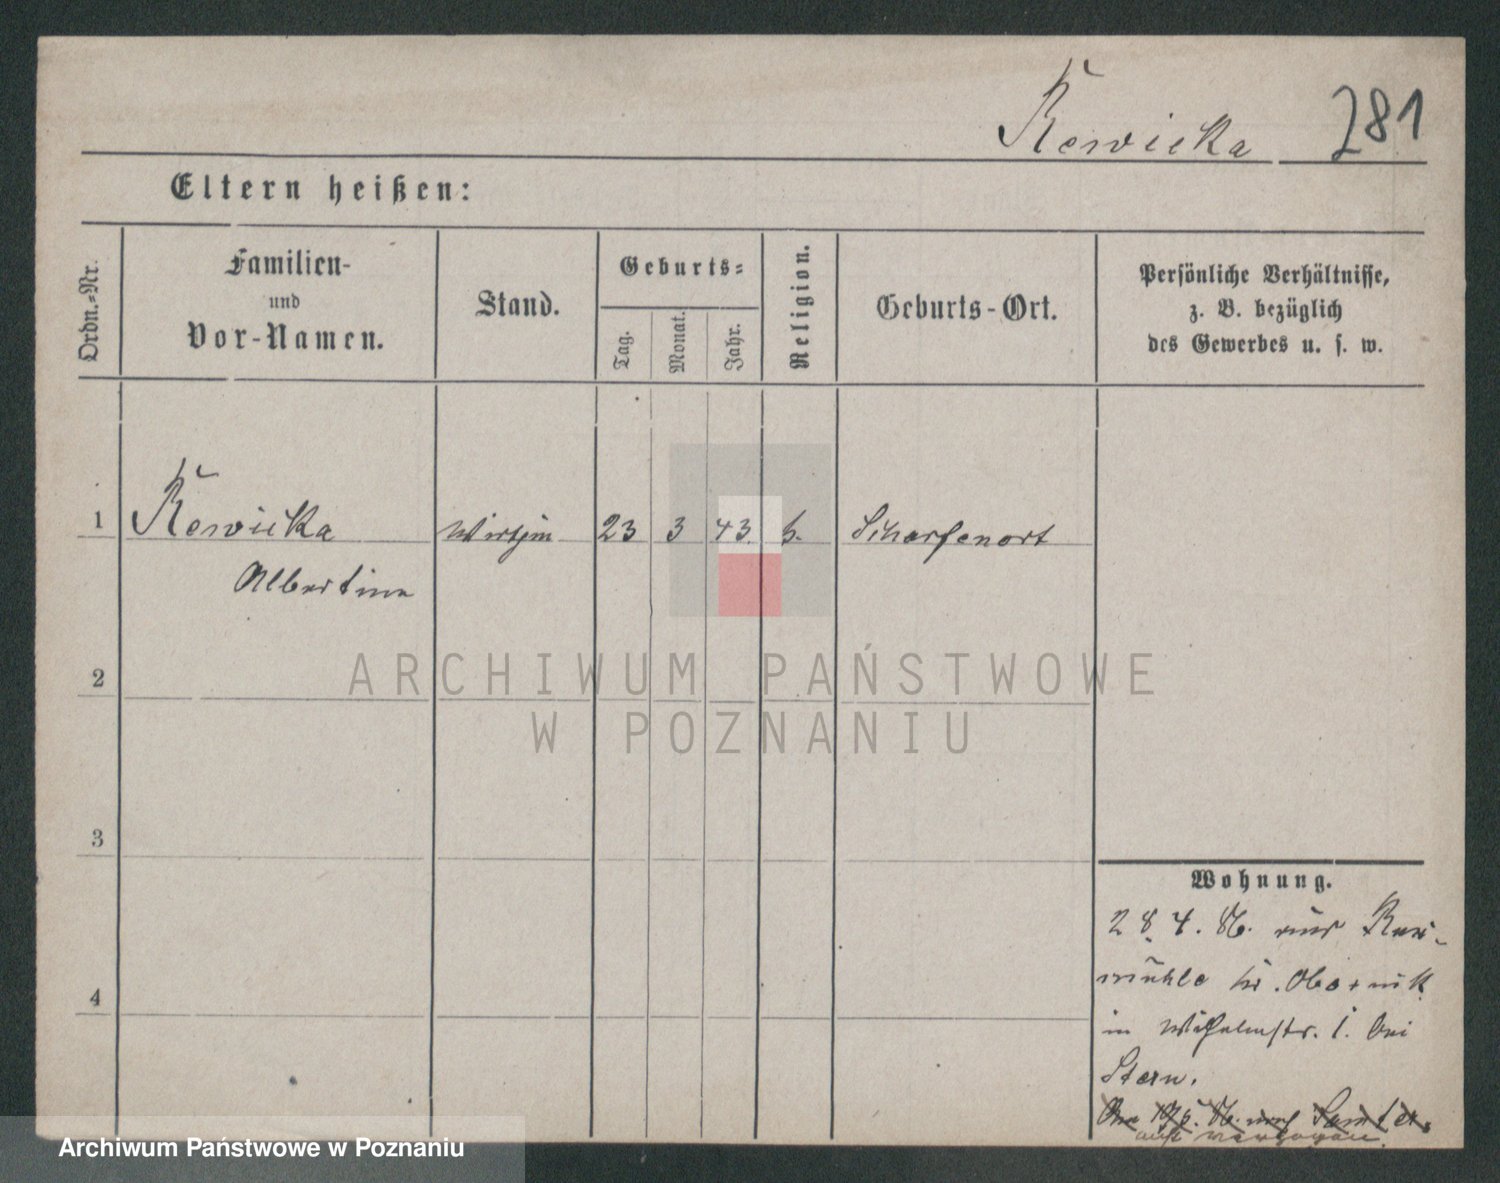 Rewicka 281
Eltern heißen:
Ordn.-Nr.
Familien-
und
Vor-Namen.
Stand.
Geburts-
Tag.
Monat.
Jahr.
Religion.
Geburts-Ort.
Persönliche Verhältnisse,
z. B. bezüglich
des Gewerbes u. s. w.
1 Rewicka 23 3 43 Scharfenort
Albertine
2
3
4
ARCHIWUM PAŃSTWOWE
W POZNANIU
Wohnung.
28. 4. 86. aus
mühle Kr. Obornik
in Wilhelmstr. 1. bei
Stern.
86. nach Samter.
Archiwum Państwowe w Poznaniu